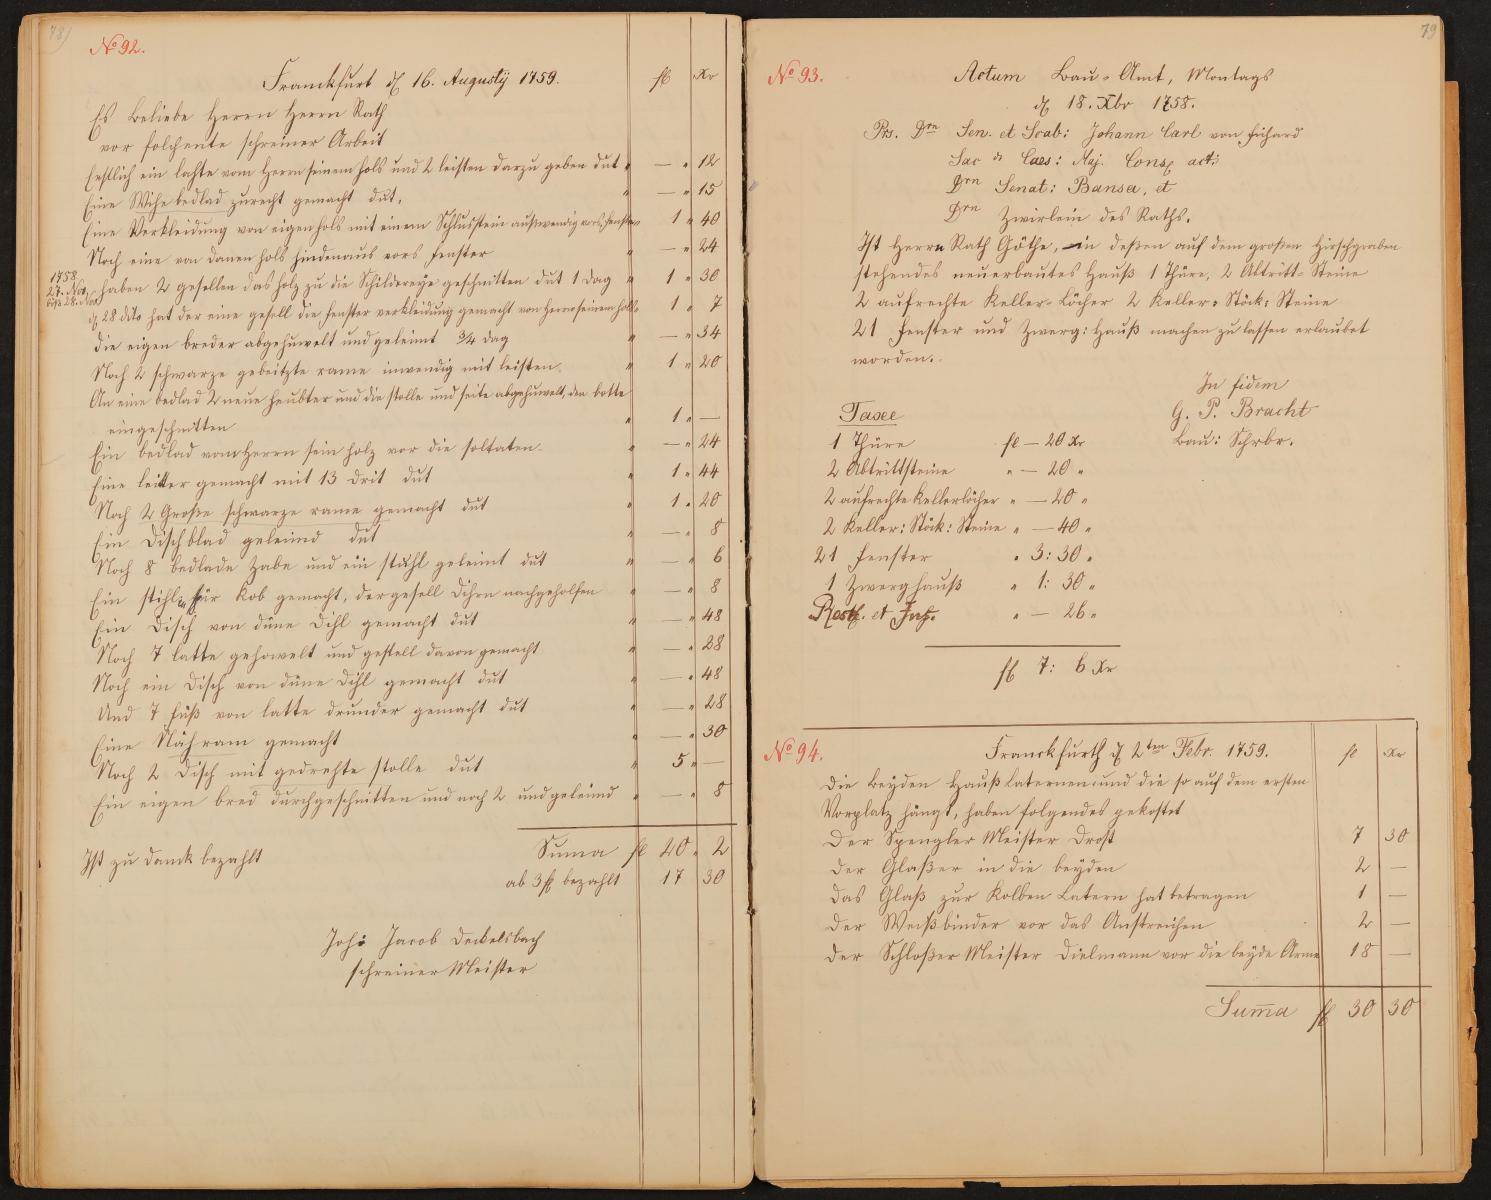 78)
No 92.
Franckfurt d 16. Augustij 1759.
fl Xr
Es beliebe Herrn Herrn Rath
vor folchente schreiner Arbeit
Erstlich ein lahte vom Herrn seinem hols und 2 leisten darzu geben dut " — " 12
Eine Wihe bedlad zurecht gemacht dut. " — " 15
Eine Verkleidung von eigen hols mit einem Schlusstein auswendig vors fenster 1 " 40
Noch eine von danen hols hindenaus vors fenster " — " 24
1758
27. Nov.
biß 28. Nov.
haben 2 gesellen das holz zu die Schildereye geschnitten dut 1 dag " 1 " 30
d 28 dito hat der eine gesell die fenster verkleidung gemacht von Herrn seinem hols 1 " 7
die eigen breder abgehuwelt und geleimt 3/4 dag " — " 34
Noch 2 schwarze gebeitzte rame inwendig mit leisten. " 1 " 20
An eine bedlad 2 neue heubter und die stolle und seite abgehuwelt, den botte
eingeschnitten " 1 " —
Ein bedlad vom Herrn sein holz vor die soltaten " — " 24
Eine leitter gemacht mit 13 drit dut " 1 " 44
Noch 2 Große schwarze rame gemacht dut " 1 " 20
Ein Dischblad geleimd dut " — " 8
Noch 8 bedlade Zabe und ein stuhl geleimt dut " — " 6
Ein stihl für Kob gemacht, der gesell dihrn nachgeholfen " — " 8
Ein Disch von düne dihl gemacht dut " — " 48
Noch 7 latte gehowelt und gestell davon gemacht " — " 28
Noch ein Disch von düne dihl gemacht dut " — " 48
Und 7 füß von latte drunder gemacht dut " — " 28
Eine Näh ram gemacht " — " 30
Noch 2 Disch mit gedrehte stolle dut " 5 " —
Ein eigen bred durchgeschnitten und noch 2 und geleimd " — " 8
Suma fl 20 " 2
Ist zu danck bezahlt
ab 3 fl bezahlt 17 30
Joh: Jacob Deckelsbach
schreiner Meister
79
No 93.
Actum Bau-Amt, Montags
d 18. Xbr 1758.
Prs. Drn Sen. et Scab: Johann Carl von Fichard
Sac. Caes: Maj. Cons. act:
Drn Senat: Bansa, et
Drn Zwirlein des Raths.
Ist Herrn Rath Göthe, in deßen auf dem großen Hirschgraben
stehendes neuerbautes Hauß 1 Thüre, 2 Abtritt-Steine
2 aufrechte Keller-Löcher 2 Keller: Stöck: Steine
21 Fenster und Zwerg: Hauß machen zu lassen erlaubet
worden.
In fidem
G. P. Bracht
Bau: Schrbr.
Taxe
1 Thüre fl — 20 Xr
2 Abtrittsteine " — 20 "
2 aufrechte Kellerlöcher " — 20 "
2 Keller: Stöck: Steine " — 40 "
21 Fenster " 3: 30 "
1 Zwerghauß " 1: 30 "
" — 26 "
fl 7: 6 Xr
No 94.
Franckfurth d 2ten Febr. 1759.
fl Xr
Die beyden Hauß Laternen und die so auf dem ersten
Vorplatz hängt, haben folgendes gekostet
Der Spengler Meister Drost 7 30
Der Glaßer in die beyden 2 —
Das Glaß zur Kolben Latern hat betragen 1 —
Der Weißbinder vor das Anstreichen 2 —
Der Schloßer Meister Dielmann vor die beyde Arme 18 —
Suma fl 30 30